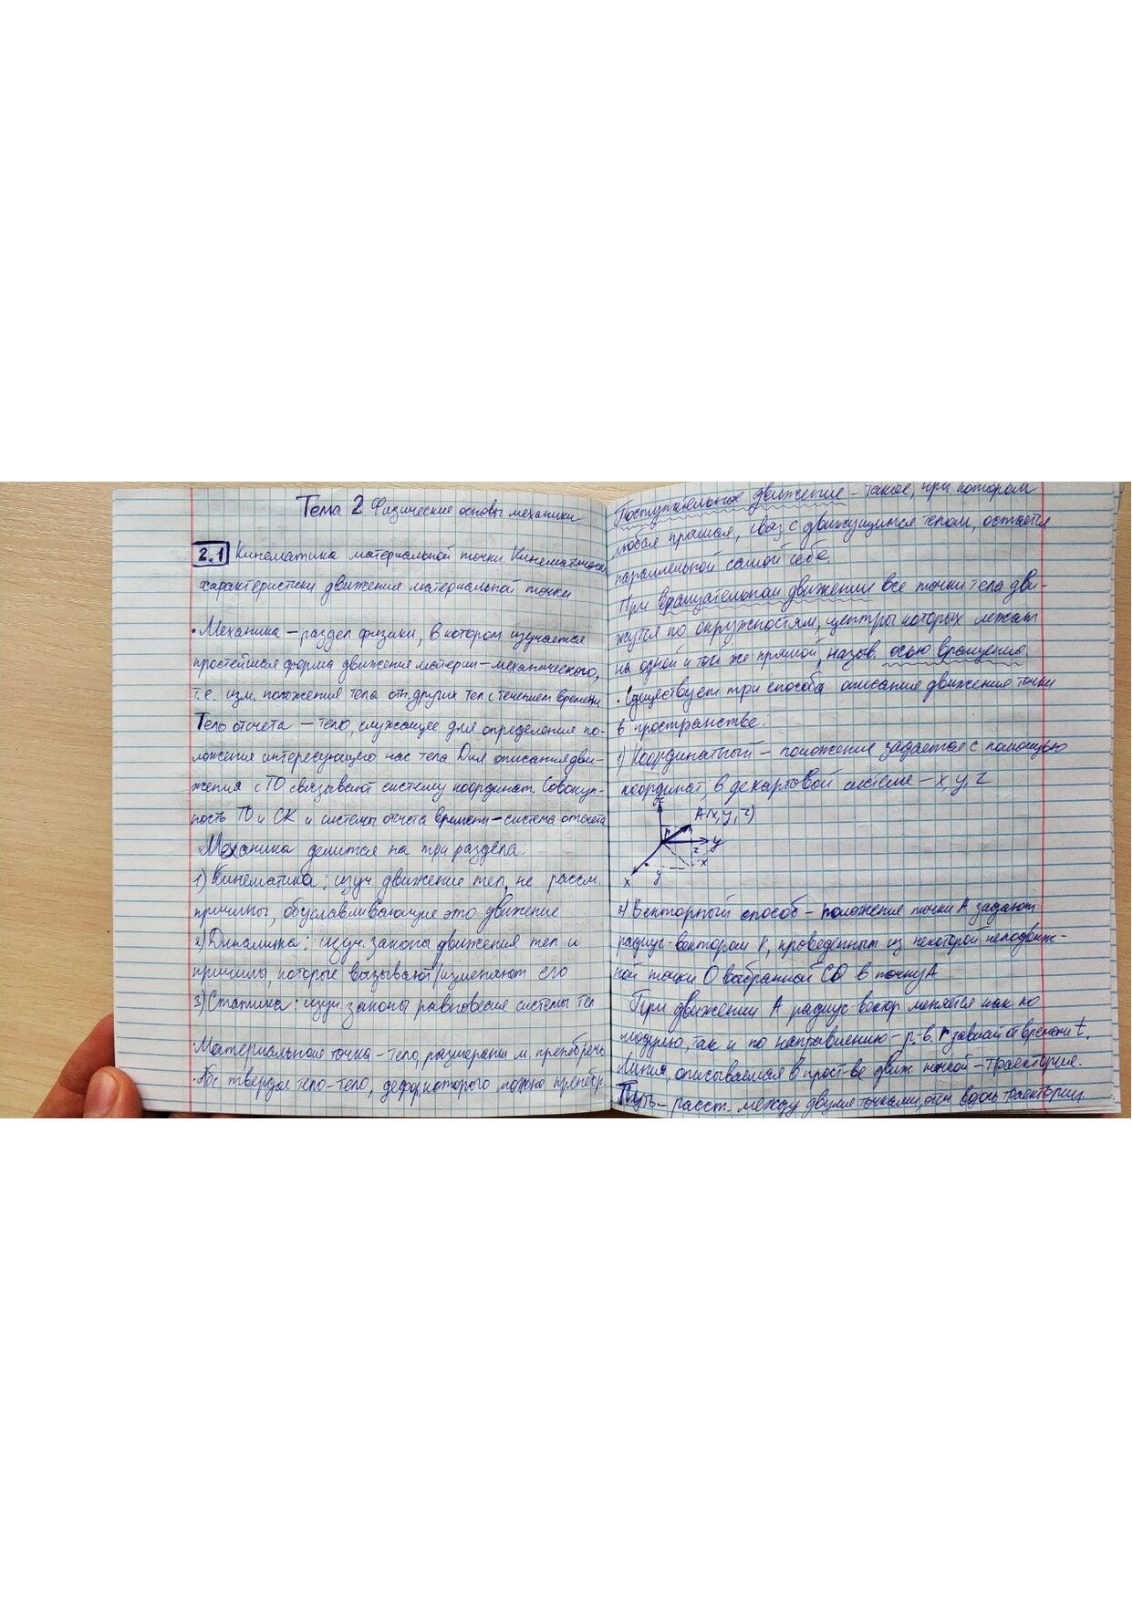 Тема 2 Физические основы механики
2.1 Кинематика материальной точки. Кинематические
характеристики движения материальной точки
• Механика – раздел физики, в котором изучается
простейшая форма движения материи – механического,
т.е. изм. положения тела отн. других тел с течением времени
Тело отсчета – тело, служащее для определения по-
ложения интересующего нас тела Для описания дви-
жения с ТО связывают систему координат. Совокуп-
ность ТО и СК и системы отсчета времени – система отсчета
Механика делится на три раздела
1) Кинематика: изуч. движение тел, не рассм.
причины, обуславливающие это движение
2) Динамика: изуч. законы движения тел и
причины, которые вызывают/изменяют его
3) Статика: изуч. законы равновесия системы тел
• Материальная точка – тело, размерами м. пренебречь
• Абс твердое тело – тело, дефор. которого можно пренебр.
Поступательное движение – такое, при котором
любая прямая, связ с движущимся телом, остается
параллельной самой себе.
При вращательном движении все точки тела дви-
жутся по окружностям, центры которых лежат
на одной и той же прямой, назыв. осью вращения
• Существует три способа описания движения точки
в пространстве.
1) Координатный – положение задается с помощью
координат, в декартовой системе – x, y, z
z
A(x, y, z)
r
y
z
x
y
x
2) Векторный способ – положение точки А задают
радиус-вектором r, проведенным из некоторой неподвиж-
ной точки О выбранной СО в точку А
При движении А радиус вектор меняется как по
модулю, так и по направлению – р.-в. r зависит от времени t.
Линия, описываемая в прост-ве движ точкой – траектория.
Путь – расст. между двумя точками, вдоль траектории